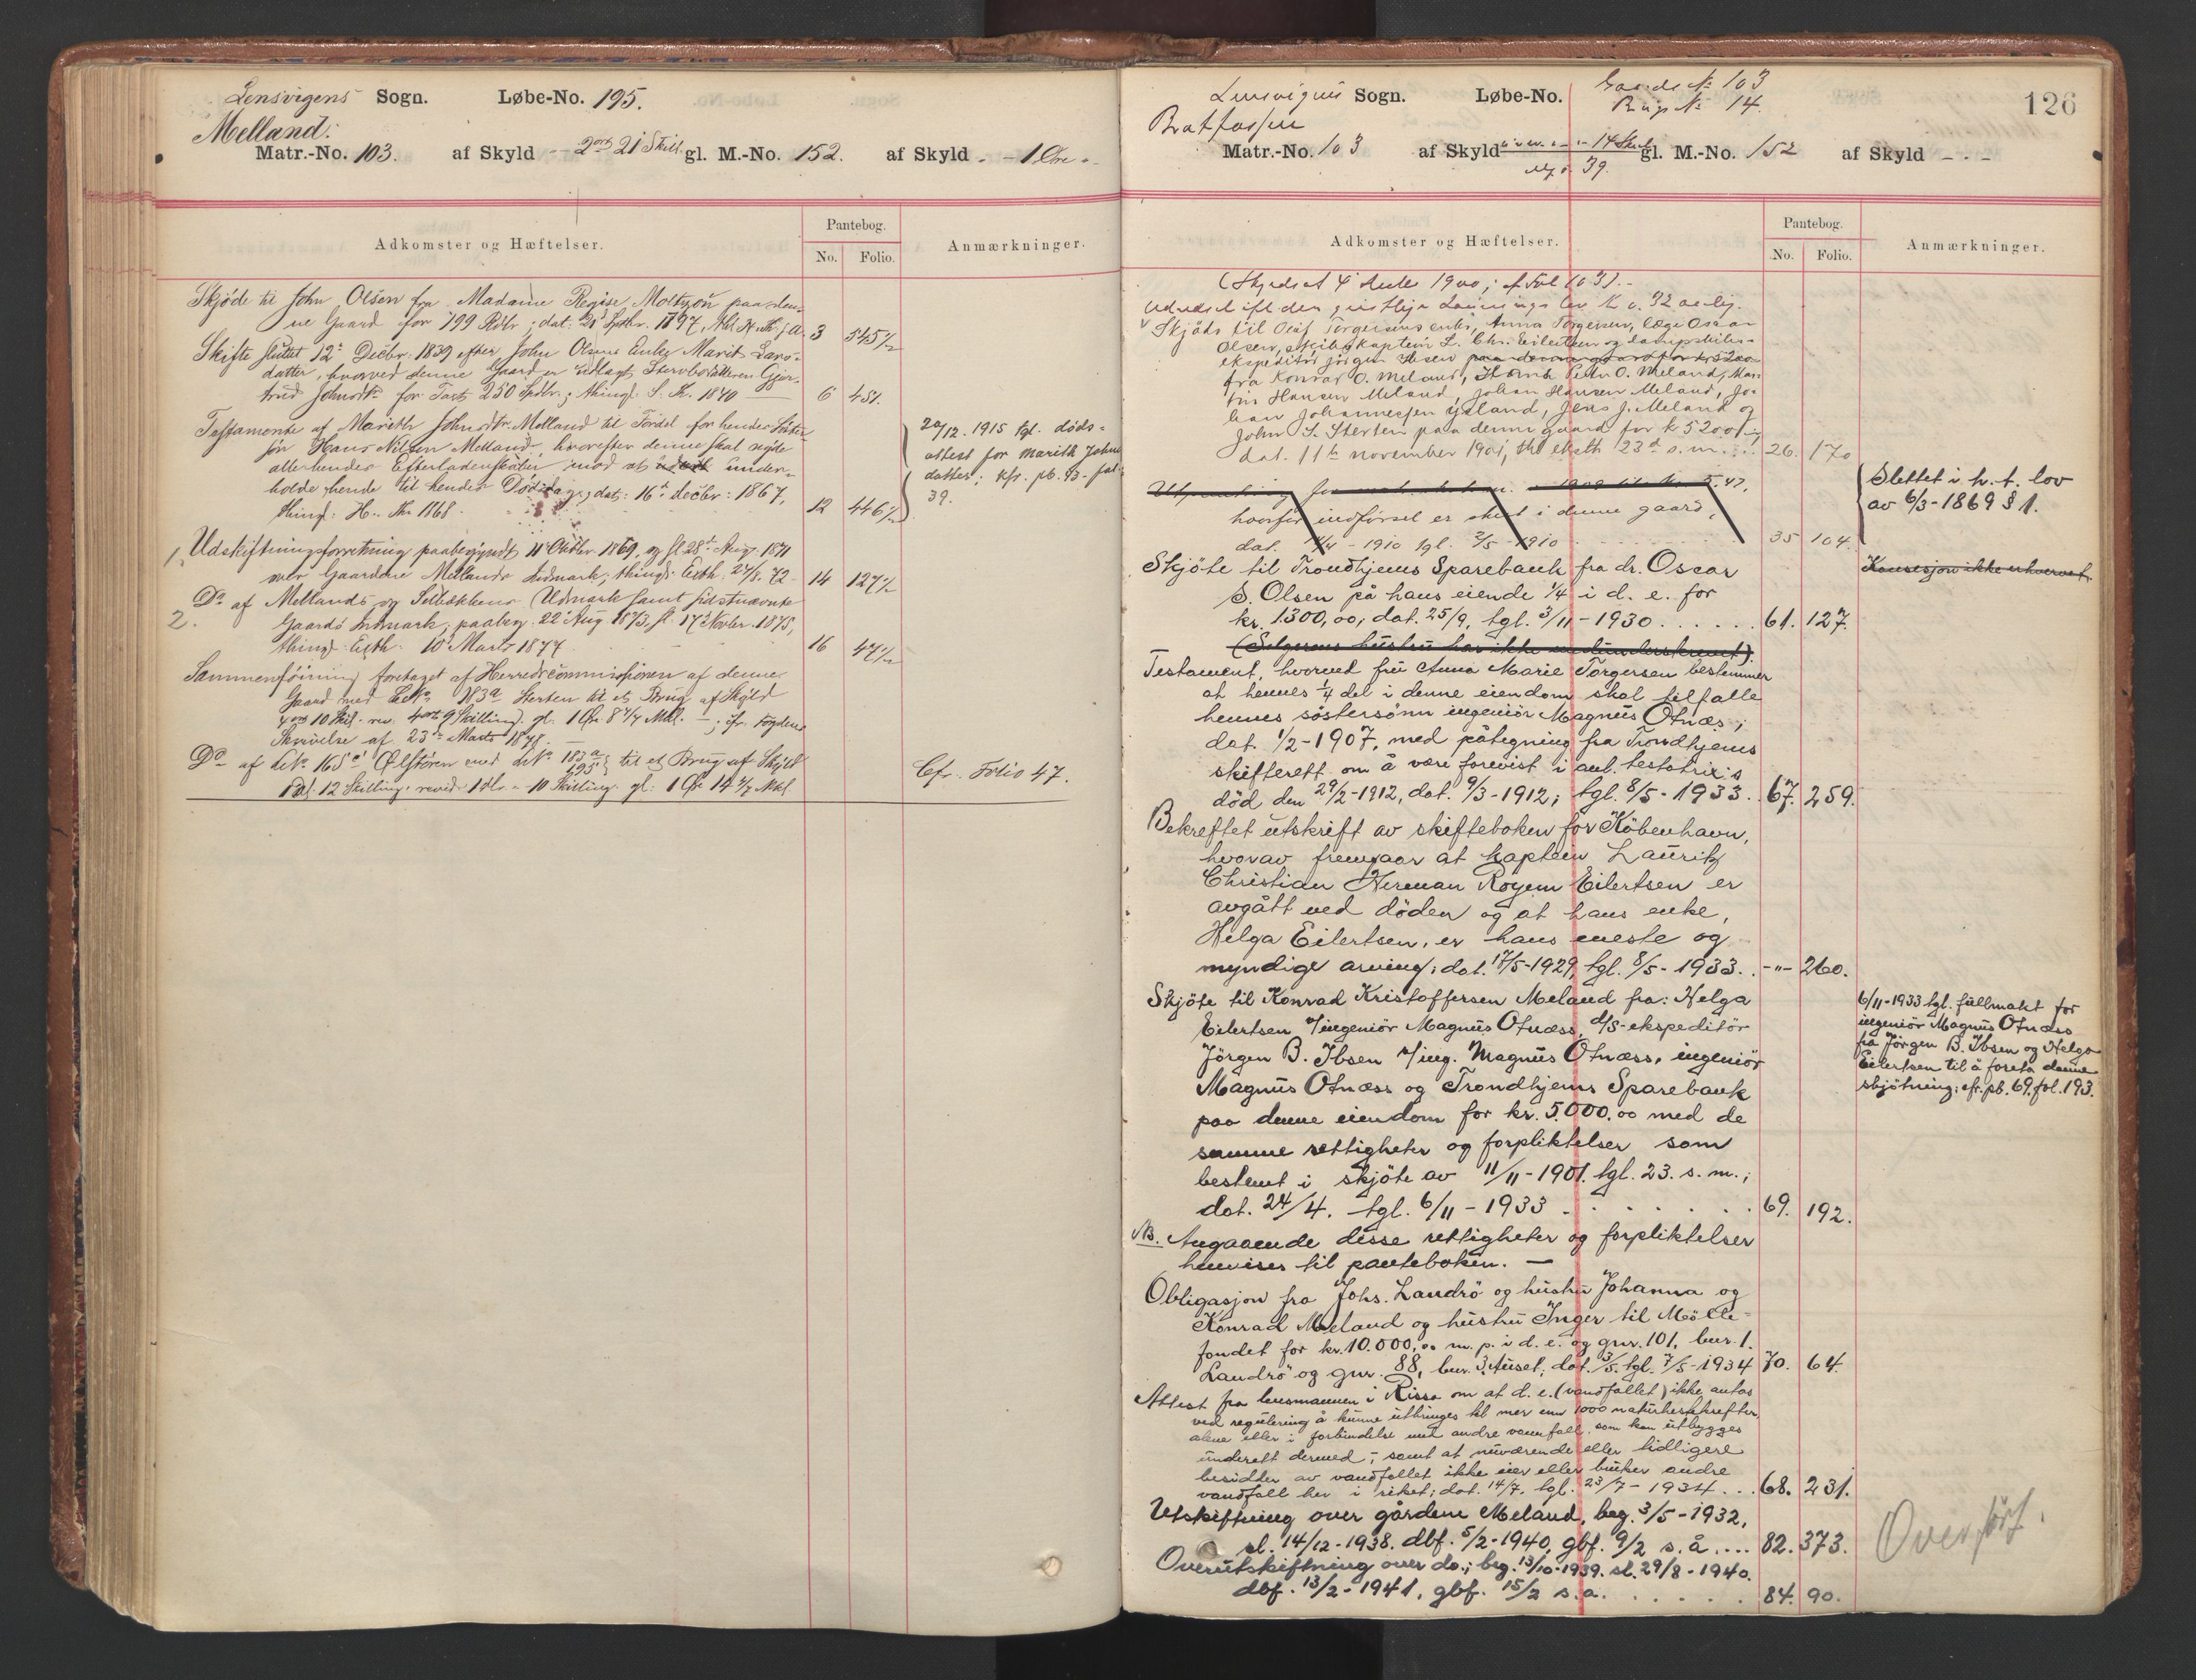 Lensvigens Sogn. Løbe-No. 195.
Melland.
Matr.-No. 103. af Skyld - 2 ort 21 Skill. gl. M.-No. 152. af Skyld - - 1 Øre -
Adkomster og Hæftelser. Pantebog. Anmærkninger.
No. Folio.
Skjöde til John Olsen fra Madame Regise Moltzon paa den-
ne Gaard for 199 Rdlr; dat. 21 Septbr. 1797, 3 545 1/2
Skifte sluttet 12te Decbr. 1839 efter John Olsens Enke Marit Lars-
datter, hvorved denne Gaard er udlagt Stervbodatteren Gjer-
trud Johnsdtr for Taxt 250 Spdlr.; thingl. S. T. 1840 6 451.
Testamente af Marith Johnsdtr Melland til Fordel for hendes Söster-
sön Hans Nilsen Melland, hvorefter denne skal nyde
alle hendes Efterladenskaber mod at under-
holde hende til hendes Dödsdag; dat: 16de decbr: 1867,
thingl: H. Th. 1868. 12 446 1/2
20/12. 1915 tgl. døds-
attest for Marith Johns
datter; kfr. pb. 43 - fol
39.
1. Udskiftningsforretning paabegyndt 11 Oktbr 1869, og sl. 28de Aug. 1871
over Gaardene Mellands Indmark; thingl. Exth. 27/8. 72 - 14 127 1/2
2. Do af Mellands og Selbækkens Udmark samt sidstnævnte
Gaards Indmark; paabeg. 22 Aug 1873, sl. 17 Novbr. 1875,
thingl. Exth. 10 Marts 1877 16 47 1/2
Sammenföining foretaget af Herredscommissionen af denne
Gaard med LNo. 183a Sterten til et Brug af Skyld
4 ort 10 Skil. rev. 4 ort 9 Skilling. gl. 1 Øre 8 4/7 Mkl. - ; cfr. Fogdens
Skrivelse af 23de Marts 1878. —
Do af LNo. 165c Ølstören med LNo. 183a 195 til et Brug af Skyld
1 Dal. 12 Skilling. revid. 1 dlr. - 10 Skilling. gl. 1 Øre 14 2/7 Mkl
Cfr. Folio 47.
Lensvigens Sogn. Løbe-No. Gaards No 103
Brugs No 14.
126
Bratfossen
Matr.-No. 103 af Skyld - 14 Skill gl. M.-No. 152 af Skyld - . -
39.
Adkomster og Hæftelser. Pantebog. Anmærkninger.
No. Folio.
(Skyldsat 4 1900; cf. Fol 103). -
Udredsel til den geistlige Lønnings 32 aarlig.
Skjöde til Oluf Torgersens enke, Anna Torgersen, læge Oscar
Olsen, skibskaptein L. Chr. Eilertsen og dampskibs-
ekspeditör Jörgen Ibsen paa denne gaard for kr 5200
fra Konrad O. Meland, Peder O. Meland, Mar-
tin Hansen Meland, Johan Hansen Meland, Jo-
han Johannesen Yeland, Jens J. Meland og
John S. Sterten paa denne gaard for k 5200,
dat. 11te november 1901, thl eksth 23de s. m. ... 26. 170
Utpantning for 5,47,
hvorfor indförsel er skeet i denne gaard,
dat. 14/4 - 1910 tgl. 2/5 - 1910 35 104.
Slettet i h. t. lov
av 6/3 - 1869 § 1.
Skjöte til Trondhjems Sparebank fra dr. Oscar
S. Olsen på hans eiende 1/4 i d. e. for
kr. 1300,00, dat. 25/9, tgl. 3/11 - 1930 . . . . . 61. 127.
Konsesjon ikke erhvervet.
(Selgerens hustru har ikke medunderskrevet).
Testament, hvorved fru Anna Marie Torgersen bestemmer
at hennes 1/4 del i denne eiendom skal tilfalle
hennes söstersönn ingeniör Magnus Otnæs;
dat. 1/2 - 1907, med påtegning fra Trondhjems
skifterett om å være forevist i anl. testatrix's
död den 29/2 - 1912, dat. 9/3 - 1912; tgl. 8/5 - 1933. 67. 259.
Bekreftet utskrift av skifteboken for Köbenhavn,
hvorav fremgaar at kaptein Lauritz
Christian Herman Rogem Eilertsen er
avgått ved döden og at hans enke,
Helga Eilertsen, er hans eneste og
myndige arving; dat. 17/5 - 1929, tgl. 8/5 - 1933. . -"- 260.
Skjöte til Konrad Kristoffersen Meland fra: Helga
Eilertsen v/ingeniör Magnus Otnæss, d/s-ekspeditör
Jörgen B. Ibsen v/ing. Magnus Otnæss, ingeniör
Magnus Otnæss og Trondhjems Sparebank
paa denne eiendom for kr. 5000.00 med de
samme rettigheter og forpliktelser som
bestemt i skjöte av 11/11 - 1901. tgl. 23. s. m.;
dat. 24/4. tgl. 6/11 - 1933 . . . . . . 69. 192.
6/11 - 1933 tgl. fullmakt for
ingeniör Magnus Otnæss
fra Jörgen B. Ibsen og Helga
Eilertsen til å foreta denne
skjötning; cfr. pb. 69. fol. 193.
NB. Angaaende disse rettigheter og forpliktelser
henvises til panteboken. —
Obligasjon fra Johs. Landrö og hustru Johanna og
Konrad Meland og hustru Inger til Mölle-
fondet for kr. 10.000,00 m. p. i d. e. og gnr. 101, bnr. 1.
Landrö og gnr. 88, bnr. 3, Auset; dat. 3/5. tgl. 7/5 - 1934 70. 64.
Attest fra lensmannen i Rissa om at d. e. (vandfallet) ikke antas
ved regulering å kunne utbringes til mer enn 1000 naturhestekrefter
alene eller i forbindelse med andre vannfall, som kan utbygges
underett dermed, - samt at nuværende eller tidligere
besidder av vandfallet ikke eier eller bruker andre
vandfall her i riket; dat. 14/7. tgl. 23/7 - 1934 . . . 68. 231.
Utskiftning over gårdene Meland, beg. 3/5 - 1932,
sl. 14/12 - 1938. dbf. 5/2 - 1940, gbf. 9/2 s. å. ... 82. 373.
Overutskiftning over do.; beg. 13/10 - 1939. sl. 29/8 - 1940.
dbf. 13/2 - 1941, gbf. 15/2 s. a. . . . . . 84. 90.
Overført.